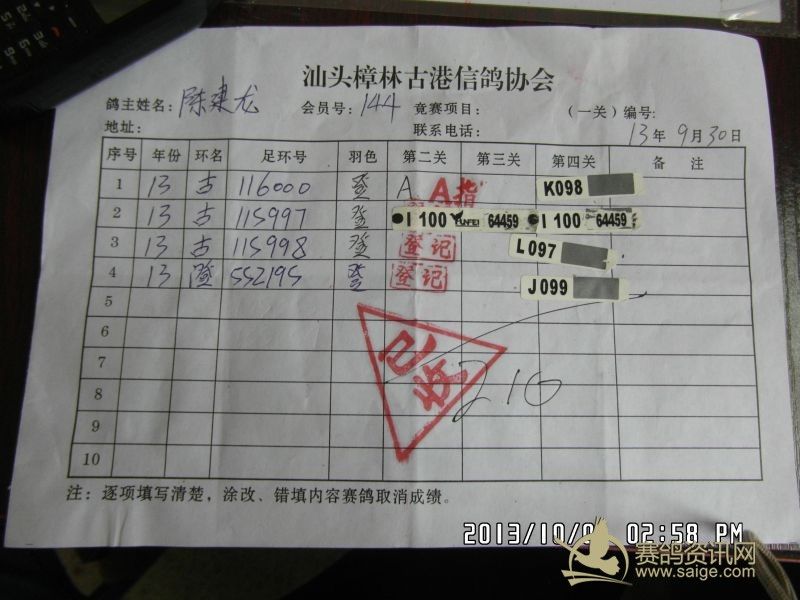 汕头樟林古港信鸽协会
鸽主姓名: 陈建龙 会员号: 144 竟赛项目: （一关）编号:
地址: 联系电话: 13年 9月30日
序号 年份 环名 足环号 羽色 第二关 第三关 第四关 备 注
1 13 古 116000 A A指 K098
2 13 古 115997 I 100 64459 I 100 64459
3 13 古 115998 登记 L097
4 13 552195 登记 J099
5
6
7
8
9
10
已收
216
注：逐项填写清楚，涂改、错填内容赛鸽取消成绩。
2013/10/0 02:58 PM
赛鸽资讯网
www.saige.com